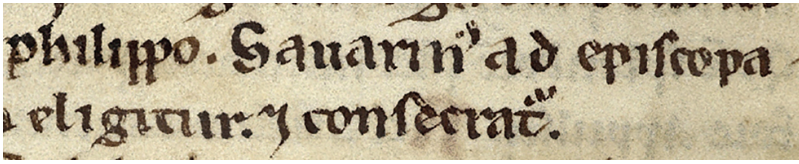 philippo. Sauarinꝰ ad episcopa
eligitur. ⁊ consecrat᷑.